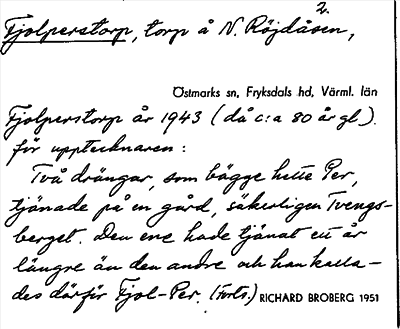 2.
Fjolperstorp, torp å N. Röjdåsen,
Östmarks sn, Fryksdals hd, Värml. län
Fjolperstorp år 1943 (då c:a 80 år gl.)
för upptecknaren:
Två drängar, som bägge hette Per,
tjänade på en gård, säkerligen Tvengs-
berget. Den ene hade tjänat ett år
längre än den andre och han kalla-
des därför Fjol-Per. (Forts.) RICHARD BROBERG 1951